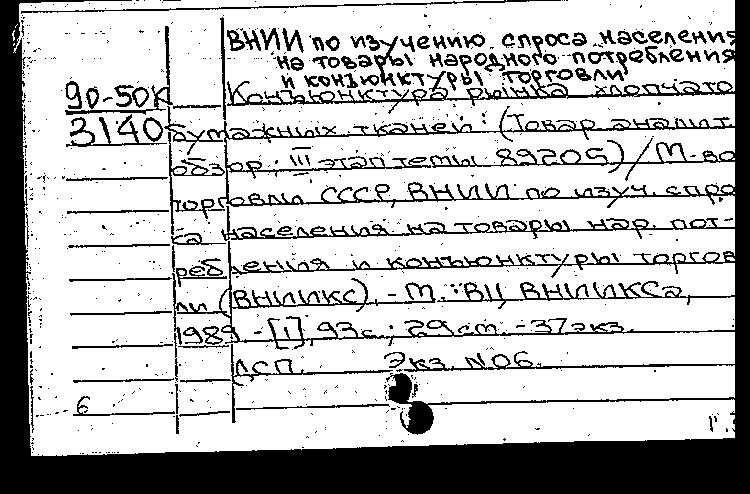 ВНИИ по изучению спроса населения
на товары народного потребления
и конъюнктуры торговли
90-50к
3140
Конъюнктура рынка хлопчато
бумажных тканей: (Товар. аналит.
обзор; III этап темы 89205) / М-во
торговли СССР, ВНИИ по изуч. спро
са населения на товары нар. пот-
ребления и конъюнктуры торгов
ли (ВНИИКС). - М.: ВЦ ВНИИКСа,
1989. - [1], 93 с.; 29 см. - 37 экз.
ДСП. Экз. N06.
6